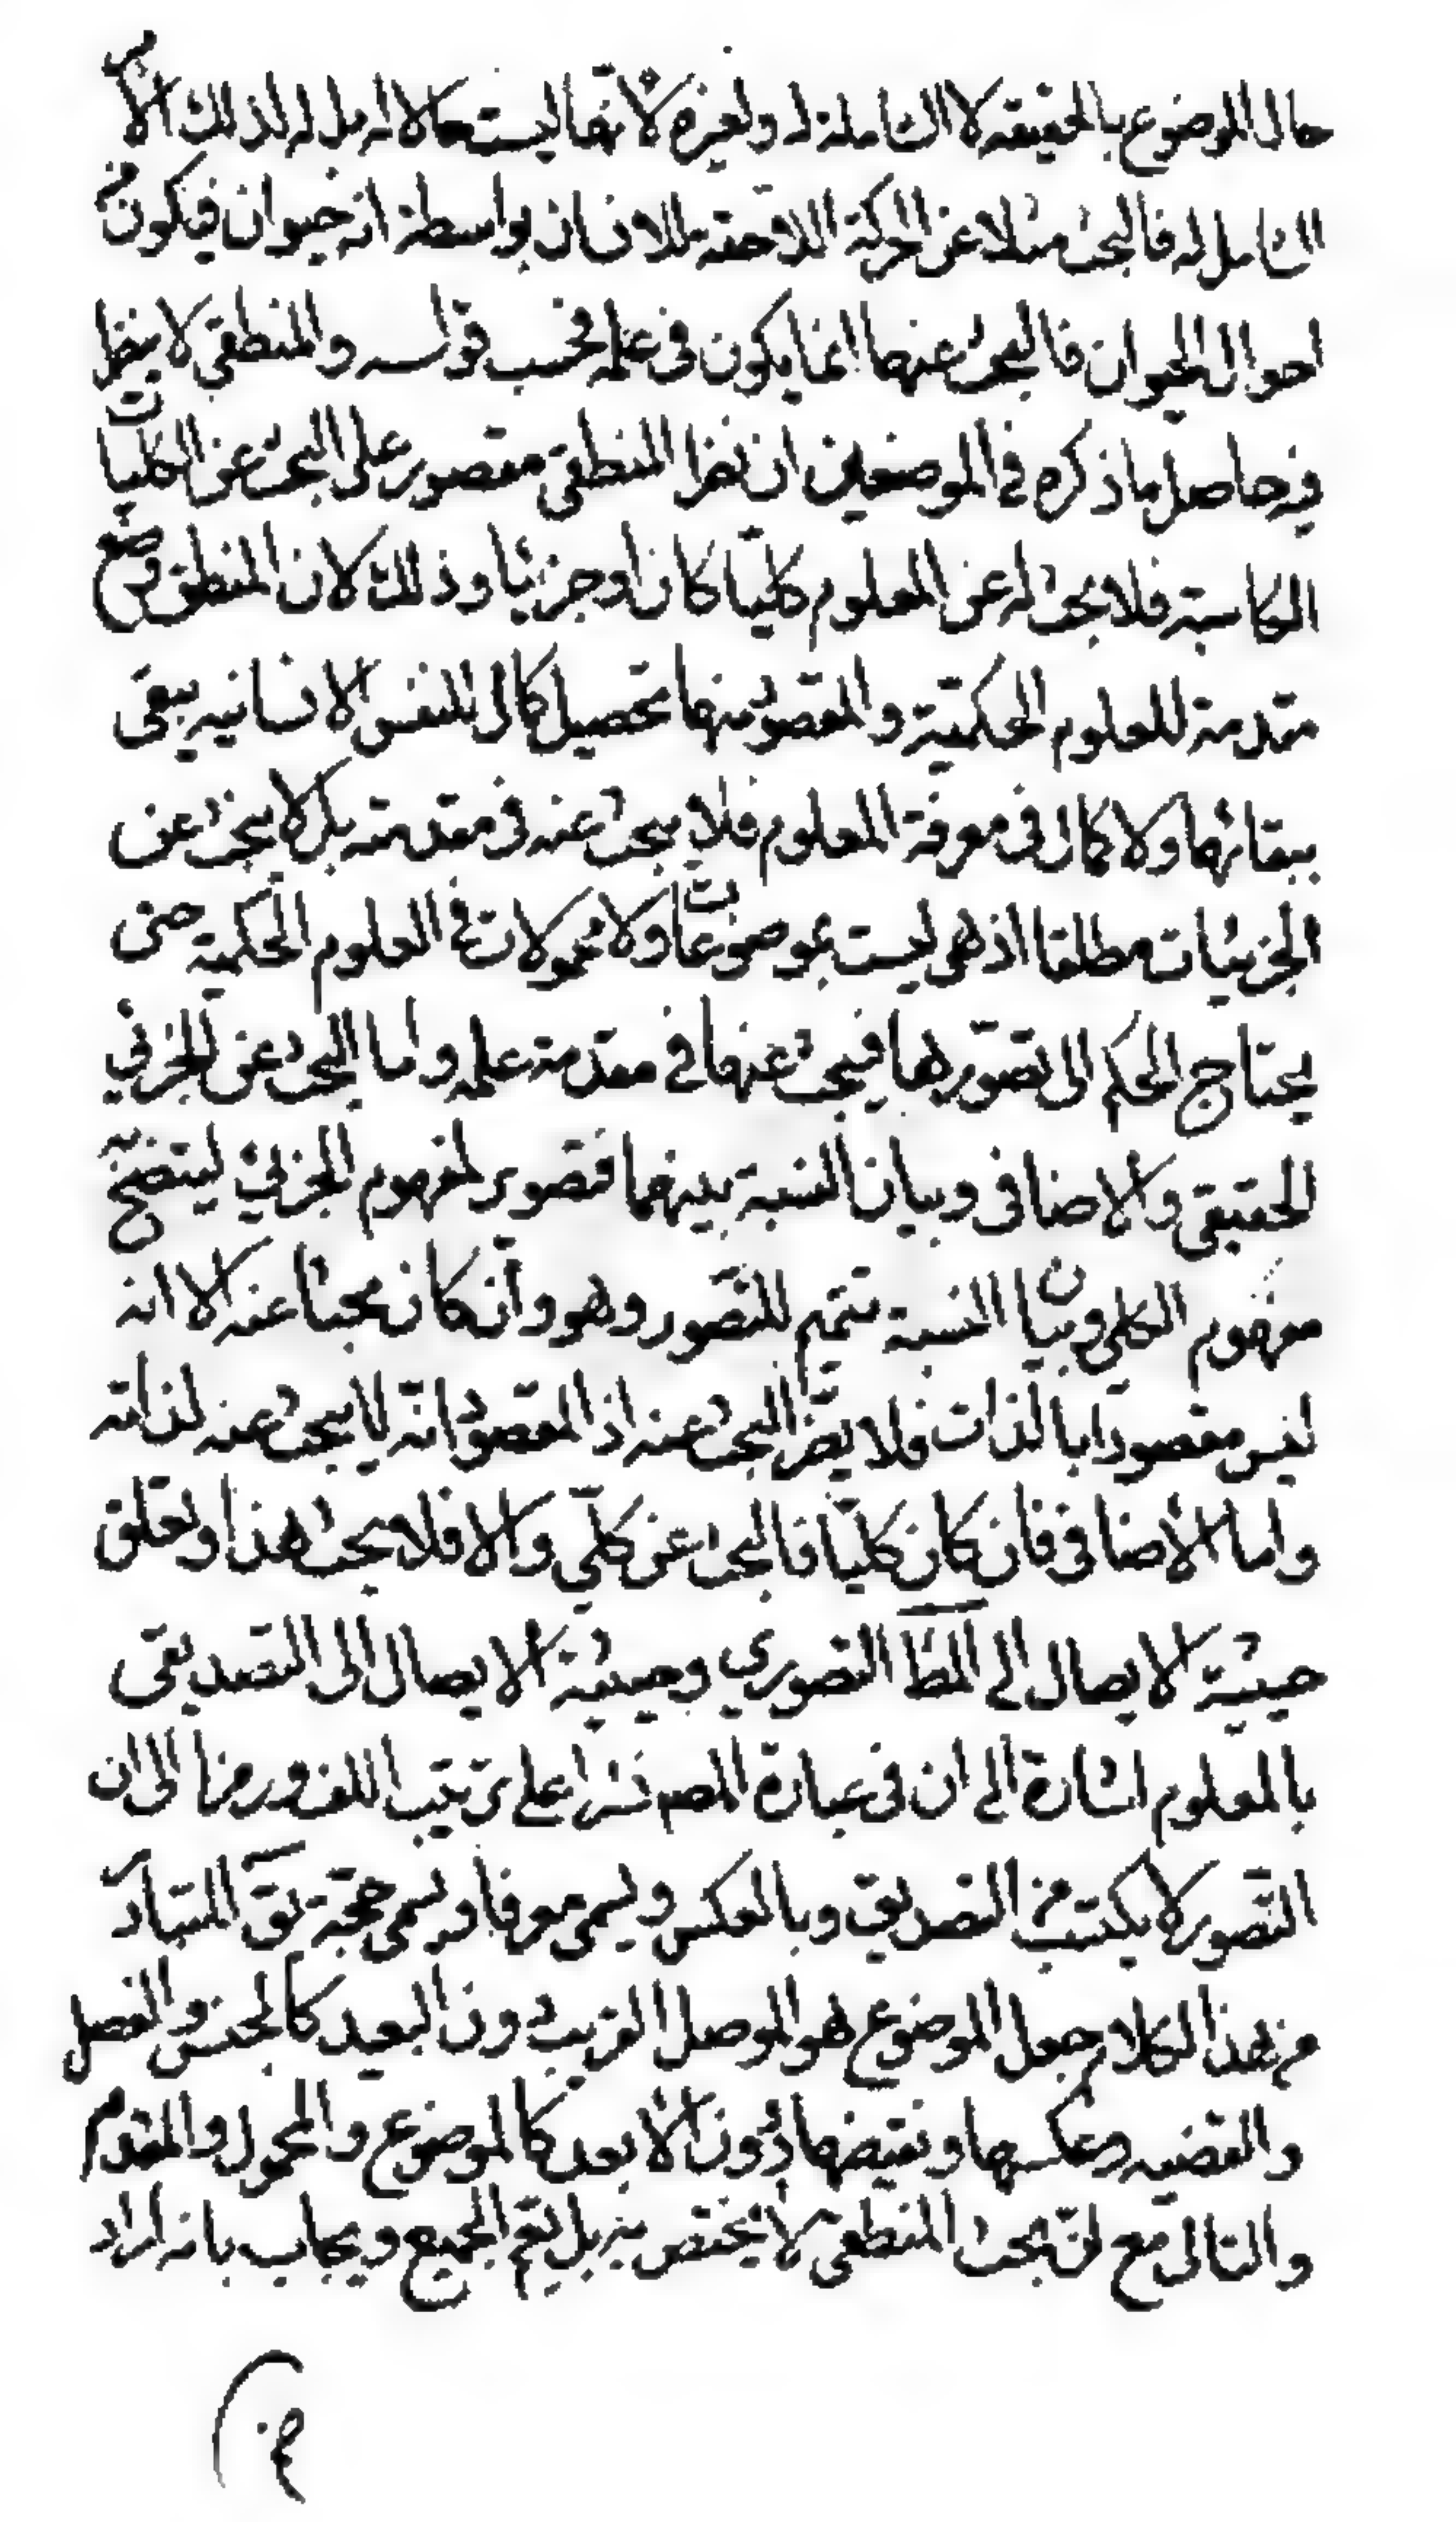 حال الموضوع بالحقيقة لا الشاملة له ولغيره لأنها ليست حالا له بل له لذلك الأمر
الشامل له فالبحث مثلا عن الحركة اللاحقة للانسان بواسطة انه حيوان فيكون من
احوال الحيوان فالبحث عنها انما يكون في علمه فحسب قوله والمنطقي لا ينظر
فيه حاصل ما ذكره في الموضعين ان نظر المنطقي مقصور على البحث عن الكليات
الكاسبة فلا بحث له عن المعلوم كليّا كان او جزئيا وذلك لان المنطق وضع
مقدمة للعلوم الحكميّة والمقصود منها تحصيل كمال للنفس الانسانيه يبقى
ببقائها ولا كمال في معرفة المعلوم فلا يبحث عنه في مقدمته بل لا يبحث عن
الجزئيات مطلقا اذ هي ليست بموضوعات ولا محمولات في العلوم الحكمية حتى
يحتاج الحكم الى تصوّرها فيبحث عنها في مقدمة علمه واما البحث عن الجزئي
الحقيقي والاضافي وبيان النسبة بينهما فتصوير لمفهوم الجزئي ليتضح به
مفهوم الكلي وبيان النسبة تتميم للتّصور وهو وان كان بحثا عنه الا انه
ليس مقصودا بالذات فلا يضرّ البحث عنه اذ المقصود انّه لا يبحث عنه لذاته
واما الأضافي فان كان كليّا فالبحث عن كلّي والا فلا بحث هذا وتعلق
حيثية الايصال الى المط التصوري وحيثية الايصال الى التصديقى
بالمعلوم اشارة الى ان في عبارة المصـ نشرا على ترتيب اللف ورمزا الى ان
التّصور لا يكتسب من التصديق وبالعكس ويسمى معرفا ويسمى حجة يقَ المتبادر
من هذا الكلام جعل الموضوع هو الموصل القريب دون البعيد كالجنس والفصل
والقضيه وعكسها ونقيضها دون الأبعد كالموضوع والمحمول والمقدم
والتالى مع انّ بحث المنطقى لا يختص به بل يعم الجميع ويجاب بانه اراد